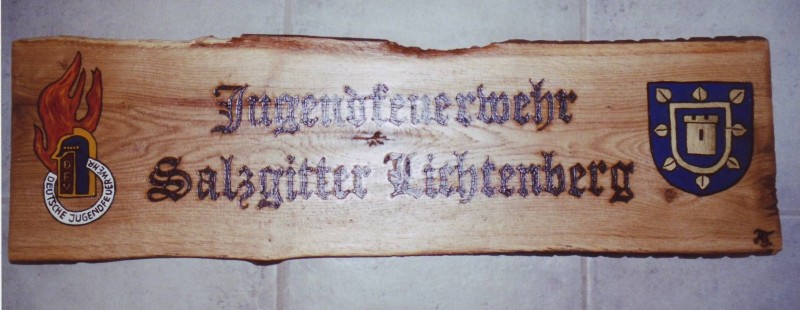 Jugendfeuerwehr
Salzgitter Lichtenberg
DFV
DEUTSCHE JUGENDFEUERWEHR